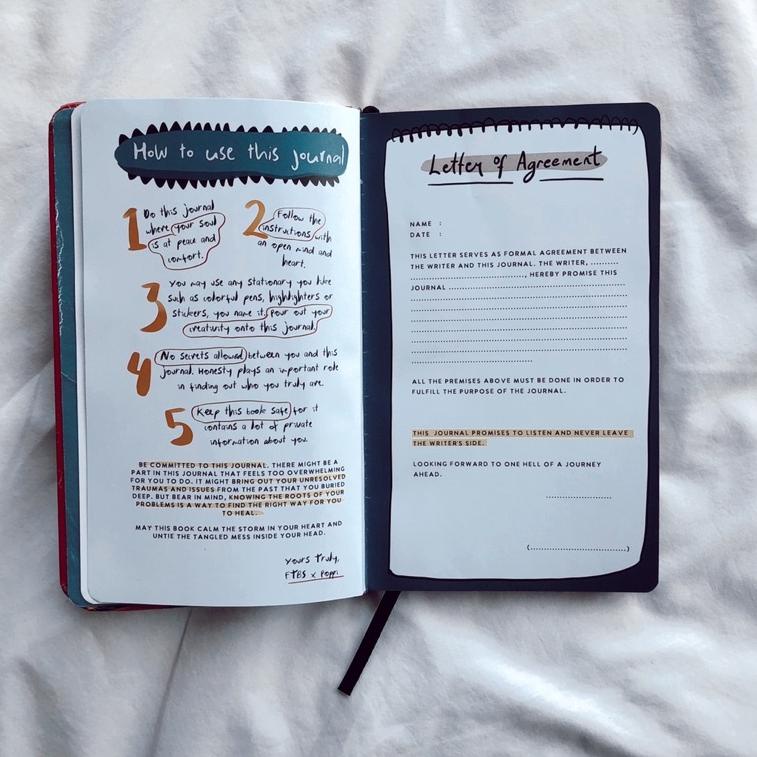 How to use this journal
1 Do this journal
where your soul
is at peace and
comfort.
2 Follow the
instructions with
an open mind and
heart.
3 You may use any stationary you like
such as colorful pens, highlighters or
stickers, you name it. Pour out your
creativity onto this journal
4 No secrets allowed between you and this
journal. Honesty plays an important role
in finding out who you truly are.
5 Keep this book safe for it
contains a lot of private
information about you.
BE COMMITTED TO THIS JOURNAL. THERE MIGHT BE A
PART IN THIS JOURNAL THAT FEELS TOO OVERWHELMING
FOR YOU TO DO. IT MIGHT BRING OUT YOUR UNRESOLVED
TRAUMAS AND ISSUES FROM THE PAST THAT YOU BURIED
DEEP. BUT BEAR IN MIND, KNOWING THE ROOTS OF YOUR
PROBLEMS IS A WAY TO FIND THE RIGHT WAY FOR YOU
TO HEAL.
MAY THIS BOOK CALM THE STORM IN YOUR HEART AND
UNTIE THE TANGLED MESS INSIDE YOUR HEAD.
Yours Truly,
FTBS x Poppi
Letter of Agreement
NAME :
DATE :
THIS LETTER SERVES AS FORMAL AGREEMENT BETWEEN
THE WRITER AND THIS JOURNAL. THE WRITER, ..........
............................, HEREBY PROMISE THIS
JOURNAL ..................................................
............................................................
............................................................
............................................................
............................................................
............................................................
..................................
ALL THE PREMISES ABOVE MUST BE DONE IN ORDER TO
FULFILL THE PURPOSE OF THE JOURNAL.
THIS JOURNAL PROMISES TO LISTEN AND NEVER LEAVE
THE WRITER'S SIDE.
LOOKING FORWARD TO ONE HELL OF A JOURNEY
AHEAD.
..................
(............................)